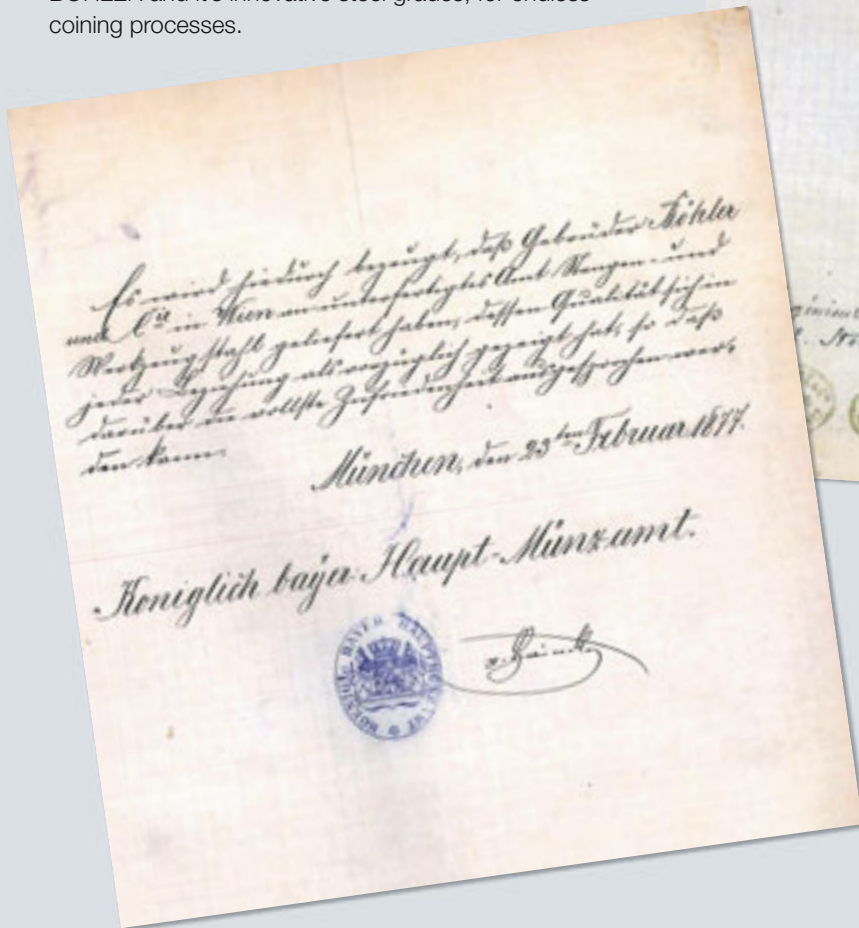 BÖHLER and it's innovative steel grades, for endless
coining processes.
Es wird hiedurch bezeugt, daß Gebrüder Böhler
und Cie in Wien an unterfertigtes Amt und
Werkzeugstahl geliefert haben, dessen Qualität sich in
jeder Beziehung als vorzüglich gezeigt hat, so daß
darüber die vollste Zufriedenheit ausgesprochen wer-
den kann.
München, den 23ten Februar 1877.
Königlich bayer. Haupt-Münzamt.